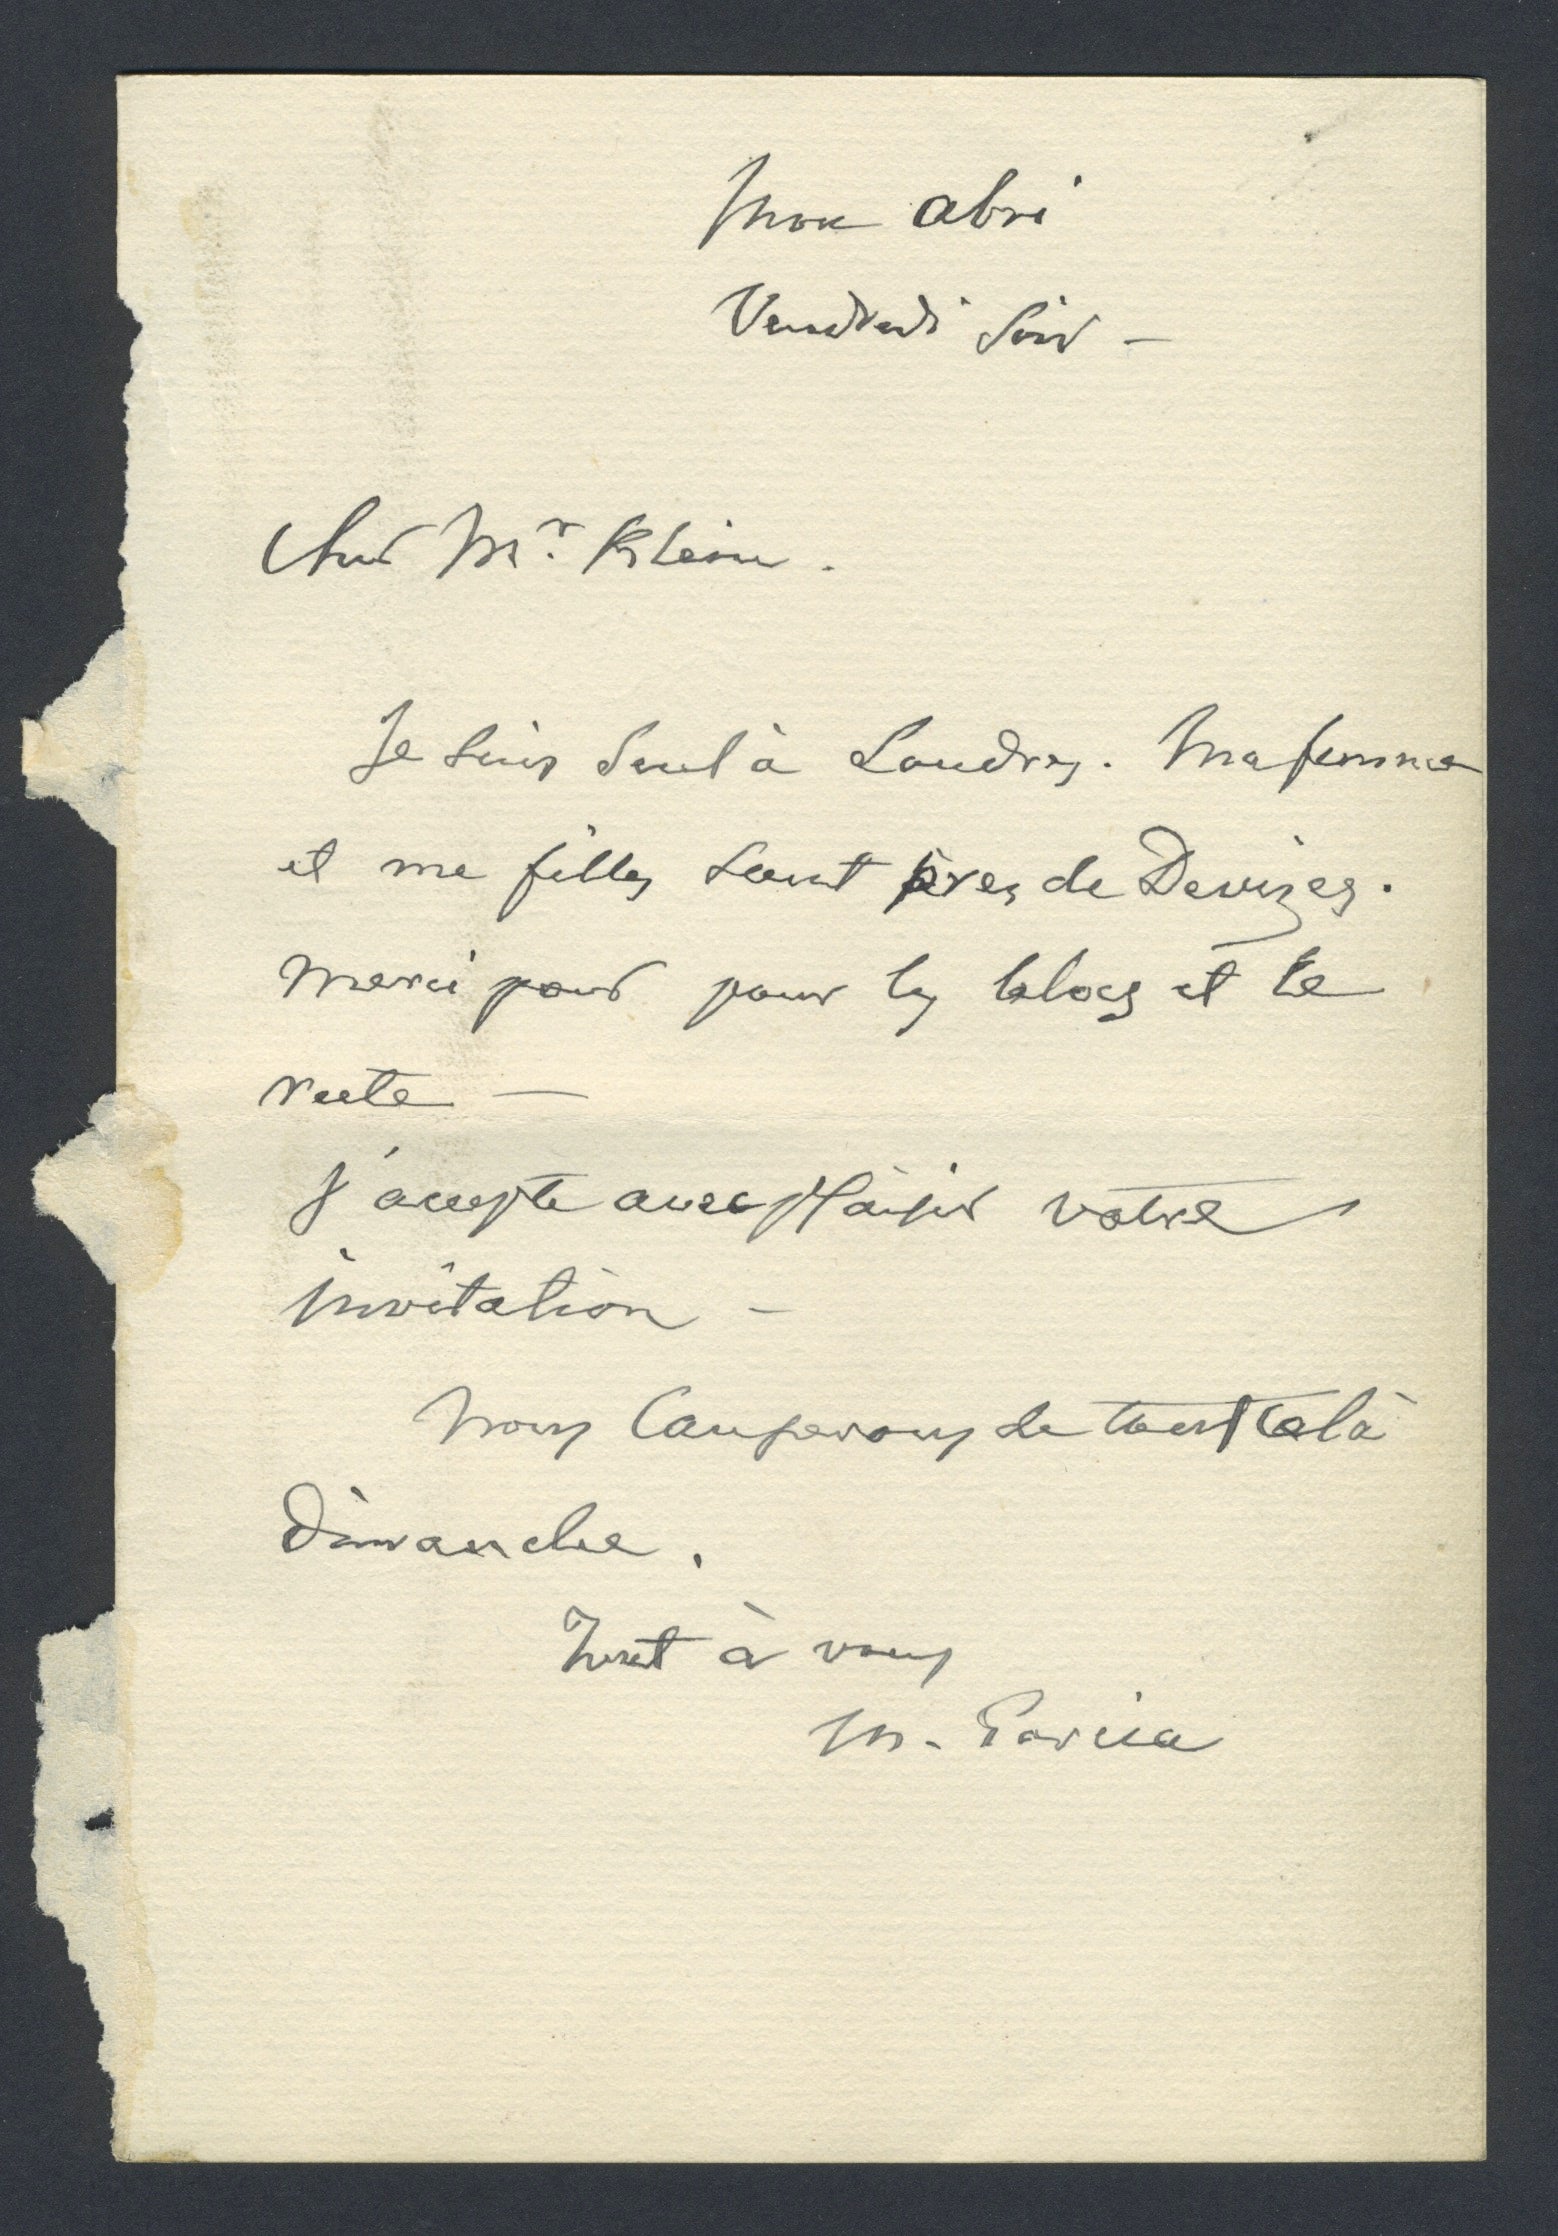 Mon abri
Vendredi soir –
Cher Mr. Klein.
Je suis seul à Londres. Ma femme
et me filles sont près de Devizes.
Merci pour pour les blocs et le
reste –
J'accepte avec plaisir votre
invitation –
Nous causerons de tout cela
Dimanche.
Tout à vous
M. Garcia